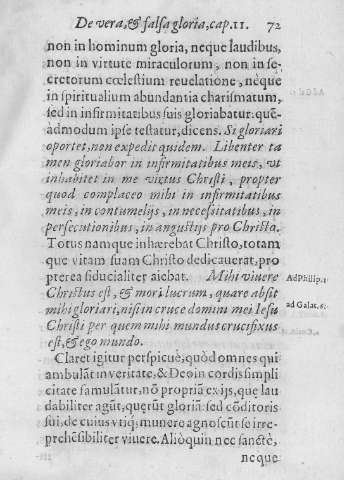 De vera, & falsa gloria, cap. 11. 72
non in hominum gloria, neque laudibus,
non in virtute miraculorum, non in se-
cretorum cœlestium reuelatione, neque
in spiritualium abundantia charismatum,
sed in infirmitatibus suis gloriabatur: quē-
admodum ipse testatur, dicens. Si gloriari
oportet, non expedit quidem. Libenter ta
men gloriabor in infirmitatibus meis, vt
inhabitet in me virtus Christi, propter
quod complaceo mihi in infirmitatibus
meis, in contumelijs, in necessitatibus, in
persecutionibus, in angustijs pro Christo.
Totus namque inhærebat Christo, totam
que vitam suam Christo dedicauerat, pro
pterea fiducialiter aiebat. Mihi viuere
Ad Philip. 1
Christus est, & mori lucrum, quare absit
mihi gloriari, nisi in cruce domini mei Iesu
ad Galat. 6.
Christi per quem mihi mundus crucifixus
est, & ego mundo.
Claret igitur perspicuè, quòd omnes qui
ambulāt in veritate, & Deo in cordis simpli
citate famulātur, nō propriā ex ijs, que lau
dabiliter agūt, querūt gloriā: sed cōditoris
sui, de cuius vtiq; munere agnoscūt se irre-
prehēsibiliter viuere. Alióquin nec sanctè,
neque